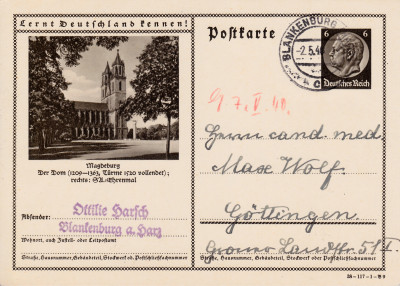 Lernt Deutschland kennen!
Magdeburg
Der Dom (1209—1363, Türme 1520 vollendet);
rechts: SA.-Ehrenmal
Absender:
Ottilie Harsch
Blankenburg a. Harz
Wohnort, auch Zustell- oder Leitpostamt
Straße, Hausnummer, Gebäudeteil, Stockwerk od. Postschließfachnummer
Postkarte
BLANKENBURG
-2.5.40
6 6
Deutsches Reich
7. V. 40.
Herrn cand. med.
Max Wolf.
Göttingen.
Groner Landstr. 51
Straße, Hausnummer, Gebäudeteil, Stockwerk od. Postschließfachnummer